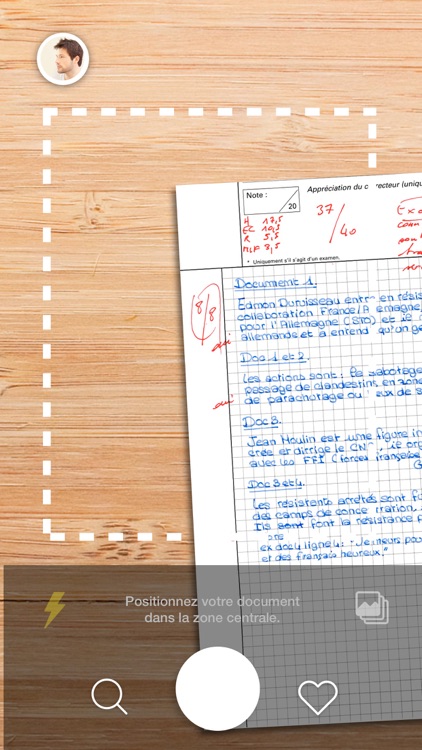 Note :
20
Appréciation du c recteur (uniqu
H 17,5
EC 10,5
R 5,5
MLF 3,5
37/40
Exc
* Uniquement s'il s'agit d'un examen.
Document 1.
8/8
Edmon Duruisseau entr en résis
collaboration France/A emagne,
pour l'Allemagne (STO) et le
allemande et a entend qu'un gé
oui
Doc 1 et 2.
Les actions sont: le sabotage
passage de clandestins en zone
oui
de parachutage ou eux de s
Doc 3.
Jean Moulin est une figure im
crée et dirige le CN , le org
avec les FFI (forces françaises
Doc 3 et 4.
Les résistants arrêtés sont fu
des camps de conce tration.
Ils sont font la résistance p
ans
ex doc 4 ligne 4: "Je meurs pou
et des français heureux."
Positionnez votre document
dans la zone centrale.